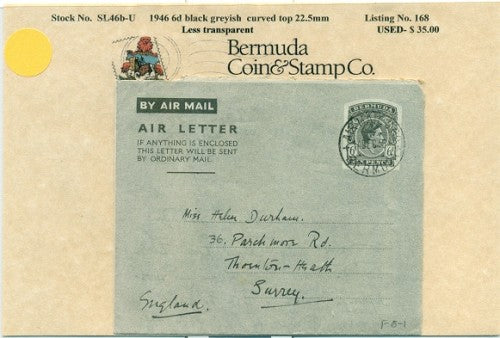 Stock No. SL46b-U 1946 6d black greyish curved top 22.5mm Listing No. 168
Less transparent USED- $ 35.00
Bermuda
Coin&Stamp Co.
BY AIR MAIL
AIR LETTER
IF ANYTHING IS ENCLOSED
THIS LETTER WILL BE SENT
BY ORDINARY MAIL.
BERMUDA
Miss Helen Durham.
36, Parchmore Rd.
Thornton-Heath
Surrey.
England.
F-B-1